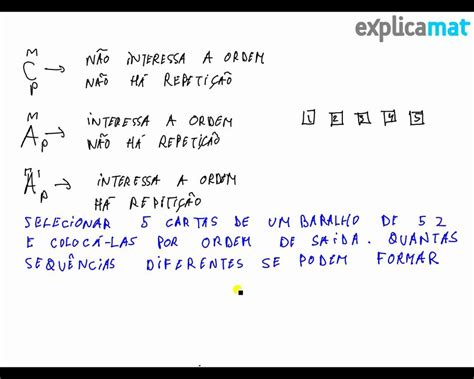 explicamat
m
C → NÃO INTERESSA A ORDEM
p NÃO HÁ REPETIÇÃO
m
A → INTERESSA A ORDEM
p NÃO HÁ REPETIÇÃO
1 2 3 4 5
A' → INTERESSA A ORDEM
p HÁ REPITIÇÃO
SELECIONAR 5 CARTAS DE UM BARALHO DE 52
E COLOCÁ-LAS POR ORDEM DE SAÍDA. QUANTAS
SEQUÊNCIAS DIFERENTES SE PODEM FORMAR